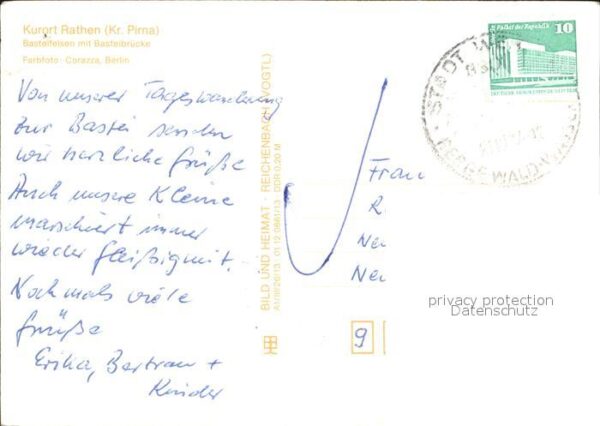 Kurort Rathen (Kr. Pirna)
Basteifelsen mit Basteibrücke
Farbfoto: Corazza, Berlin
Von unserer Tageswanderung
zur Bastei senden
wir herzliche Grüße
Auch unsere Kleine
marschiert immer
wieder fleißig mit.
Nochmals viele
Grüße
Bertram +
Kinder
BILD UND HEIMAT · REICHENBACH (VOGTL)
DDR 0,20 M
Palast der Republik
10
STADT WEHLEN
privacy protection
Datenschutz
9